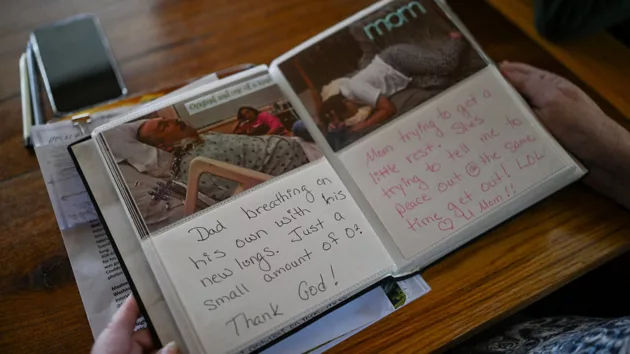 mom
Dad breathing on
his own with his
new longs. Just a
small amount of O²
Thank God!
Mom trying to get a
little rest. She's
trying to tell me to
peace out @ the same
time get out! LOL
♡ U Mom!!